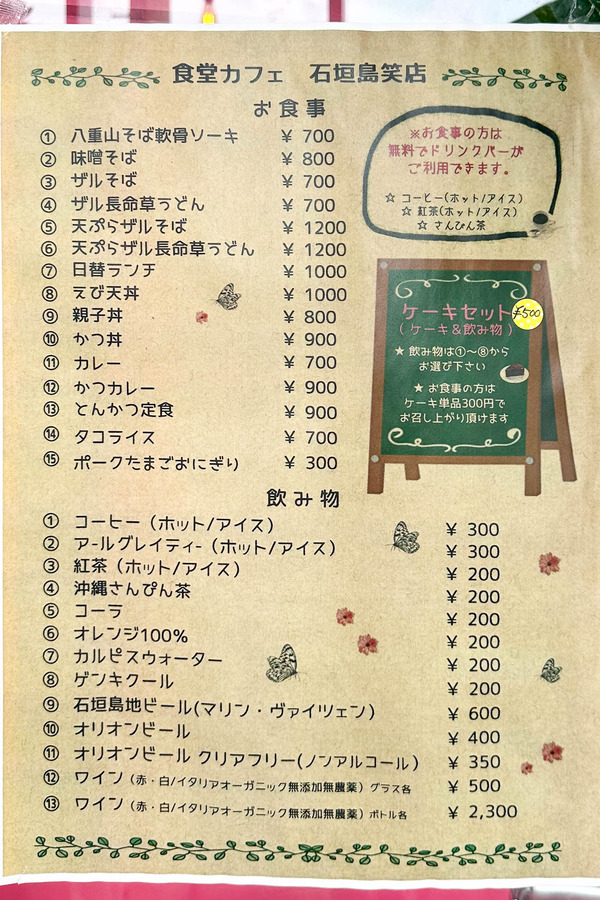 食堂カフェ 石垣島笑店
お食事
① 八重山そば軟骨ソーキ ¥ 700
② 味噌そば ¥ 800
③ ザルそば ¥ 700
④ ザル長命草うどん ¥ 700
⑤ 天ぷらザルそば ¥ 1200
⑥ 天ぷらザル長命草うどん ¥ 1200
⑦ 日替ランチ ¥ 1000
⑧ えび天丼 ¥ 1000
⑨ 親子丼 ¥ 800
⑩ かつ丼 ¥ 900
⑪ カレー ¥ 700
⑫ かつカレー ¥ 900
⑬ とんかつ定食 ¥ 900
⑭ タコライス ¥ 700
⑮ ポークたまごおにぎり ¥ 300
※お食事の方は
無料でドリンクバーが
ご利用できます。
☆ コーヒー(ホット/アイス)
☆ 紅茶(ホット/アイス)
☆ さんぴん茶
ケーキセット ¥500
(ケーキ&飲み物)
★ 飲み物は①〜⑧から
お選び下さい
★ お食事の方は
ケーキ単品300円で
お召し上がり頂けます
飲み物
① コーヒー(ホット/アイス) ¥ 300
② アールグレイティー(ホット/アイス) ¥ 300
③ 紅茶(ホット/アイス) ¥ 200
④ 沖縄さんぴん茶 ¥ 200
⑤ コーラ ¥ 200
⑥ オレンジ100% ¥ 200
⑦ カルピスウォーター ¥ 200
⑧ ゲンキクール ¥ 200
⑨ 石垣島地ビール(マリン・ヴァイツェン) ¥ 600
⑩ オリオンビール ¥ 400
⑪ オリオンビール クリアフリー(ノンアルコール) ¥ 350
⑫ ワイン(赤・白/イタリアオーガニック無添加無農薬)グラス各 ¥ 500
⑬ ワイン(赤・白/イタリアオーガニック無添加無農薬)ボトル各 ¥ 2,300